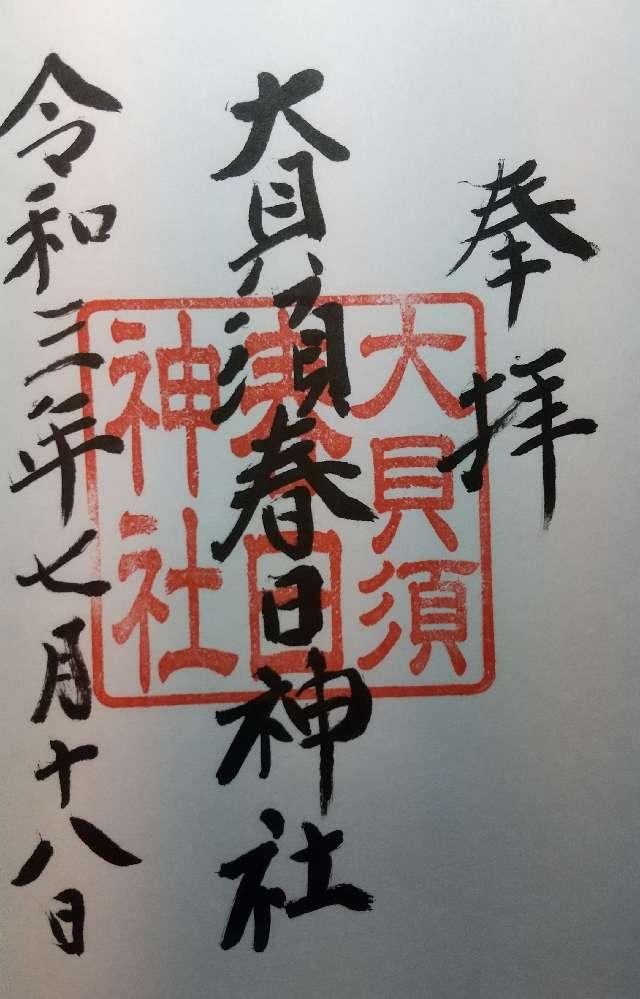 奉拝
大貝須春日神社
大貝須
春日
神社
令和三年七月十八日